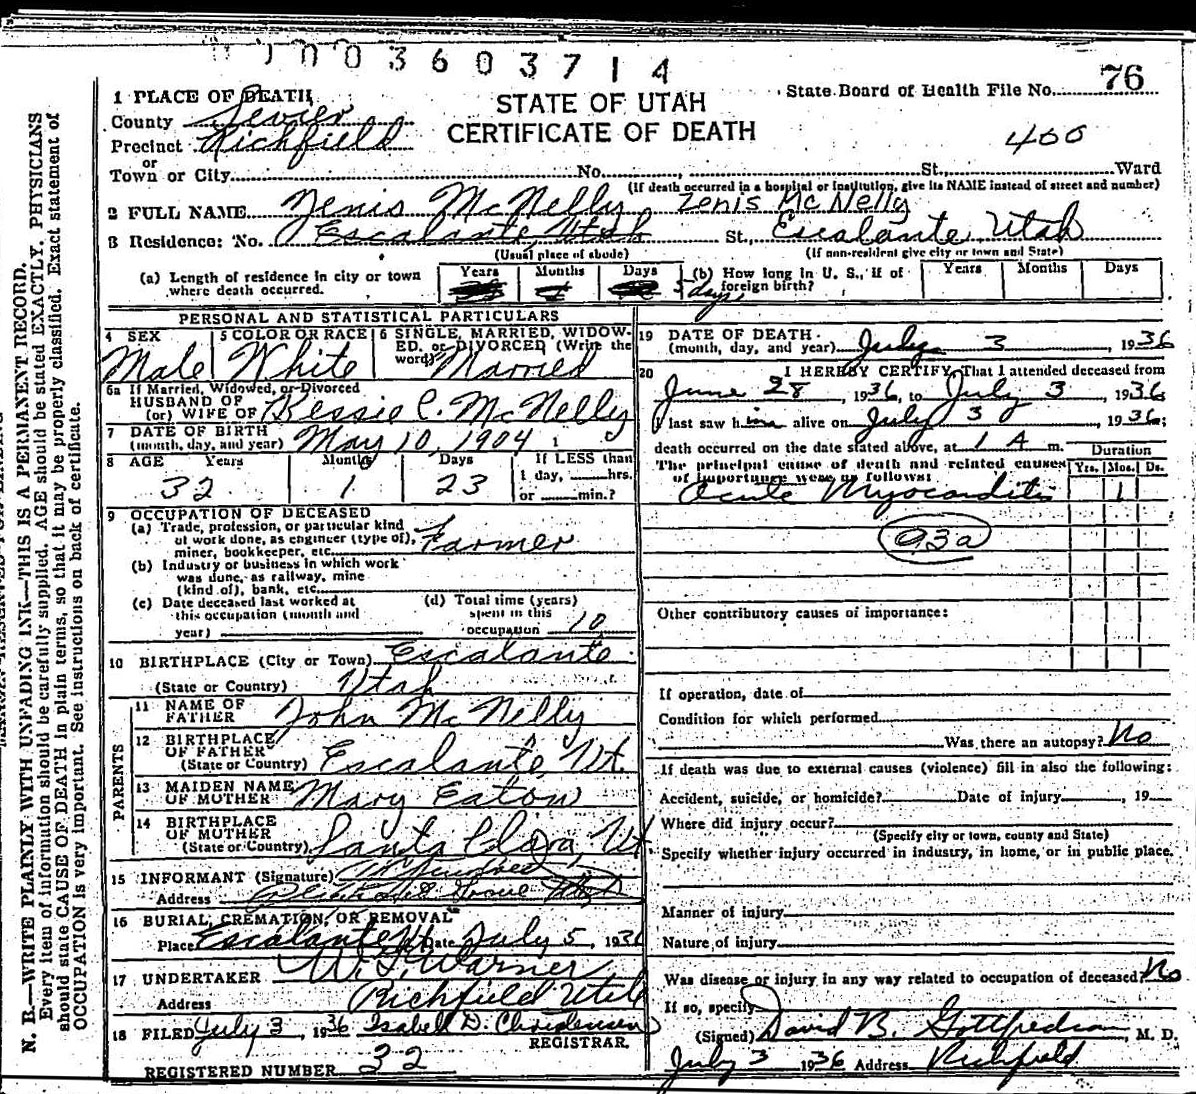 003603714
State Board of Health File No. 76
STATE OF UTAH
CERTIFICATE OF DEATH
400
1 PLACE OF DEATH
County Sevier
Precinct Richfield
or
Town or City No. , St., Ward
(If death occurred in a hospital or institution, give its NAME instead of street and number)
2 FULL NAME Zenis McNelly Zenis McNelly
3 Residence: No. Escalante, Utah St., Escalante Utah
(Usual place of abode) (If non-resident give city or town and State)
(a) Length of residence in city or town where death occurred. Years Months Days 5 days,
(b) How long in U. S., if of foreign birth? Years Months Days
PERSONAL AND STATISTICAL PARTICULARS
4 SEX Male
5 COLOR OR RACE White
6 SINGLE, MARRIED, WIDOW-
ED, or DIVORCED (Write the
word) Married
6a If Married, Widowed, or Divorced
HUSBAND OF
(or) WIFE OF Bessie C. McNelly
7 DATE OF BIRTH
(month, day, and year) May 10, 1904
8 AGE Years Months Days If LESS than
32 1 23 1 day, hrs.
or min.?
9 OCCUPATION OF DECEASED
(a) Trade, profession, or particular kind
of work done, as engineer (type of),
miner, bookkeeper, etc. Farmer
(b) Industry or business in which work
was done, as railway, mine
(kind of), bank, etc.
(c) Date deceased last worked at
this occupation (month and
year)
(d) Total time (years)
spent in this
occupation 10
10 BIRTHPLACE (City or Town) Escalante
(State or Country) Utah
PARENTS
11 NAME OF
FATHER John McNelly
12 BIRTHPLACE
OF FATHER
(State or Country) Escalante, Ut.
13 MAIDEN NAME
OF MOTHER Mary Eaton
14 BIRTHPLACE
OF MOTHER
(State or Country) Santa Clara, Ut
15 INFORMANT (Signature)
Address
16 BURIAL, CREMATION, OR REMOVAL
Place Escalante Ut Date July 5, 1936
17 UNDERTAKER W. L. Warner
Address Richfield Utah
18 FILED July 3, 1936 Isabell D. Christensen
REGISTRAR.
REGISTERED NUMBER 32
19 DATE OF DEATH
(month, day, and year) July 3, 1936
20 I HEREBY CERTIFY, That I attended deceased from
June 28, 1936, to July 3, 1936
I last saw him alive on July 3, 1936;
death occurred on the date stated above, at 1 A m.
The principal cause of death and related causes
of importance were as follows: Duration
Yrs. Mos. Ds.
Acute Myocarditis 1
93a
Other contributory causes of importance:
If operation, date of
Condition for which performed
Was there an autopsy? No
If death was due to external causes (violence) fill in also the following:
Accident, suicide, or homicide? Date of injury , 19
Where did injury occur?
(Specify city or town, county and State)
Specify whether injury occurred in industry, in home, or in public place.
Manner of injury
Nature of injury
Was disease or injury in any way related to occupation of deceased? No
If so, specify
(Signed) David B. Gottfredson, M. D.
July 3 1936 Address Richfield
N. B.—WRITE PLAINLY WITH UNFADING INK—THIS IS A PERMANENT RECORD.
Every item of information should be carefully supplied. AGE should be stated EXACTLY. PHYSICIANS
should state CAUSE OF DEATH in plain terms, so that it may be properly classified. Exact statement of
OCCUPATION is very important. See instructions on back of certificate.